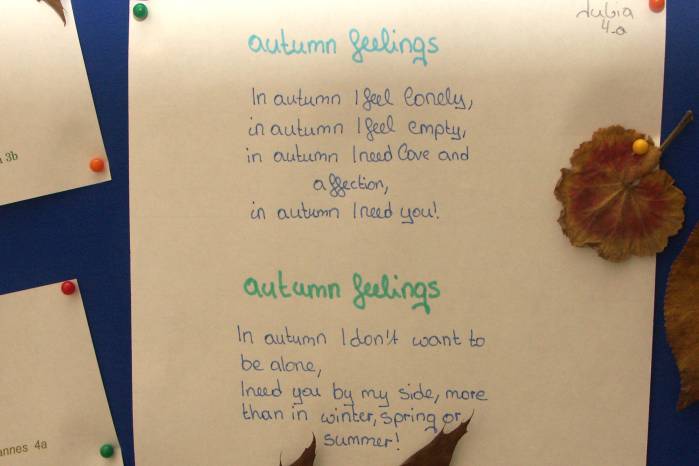 4-a
autumn feelings
In autumn I feel lonely,
in autumn I feel empty,
in autumn I need love and
affection,
in autumn I need you!
3b
autumn feelings
In autumn I don't want to
be alone,
I need you by my side, more
than in winter, spring or
summer!
annes 4a